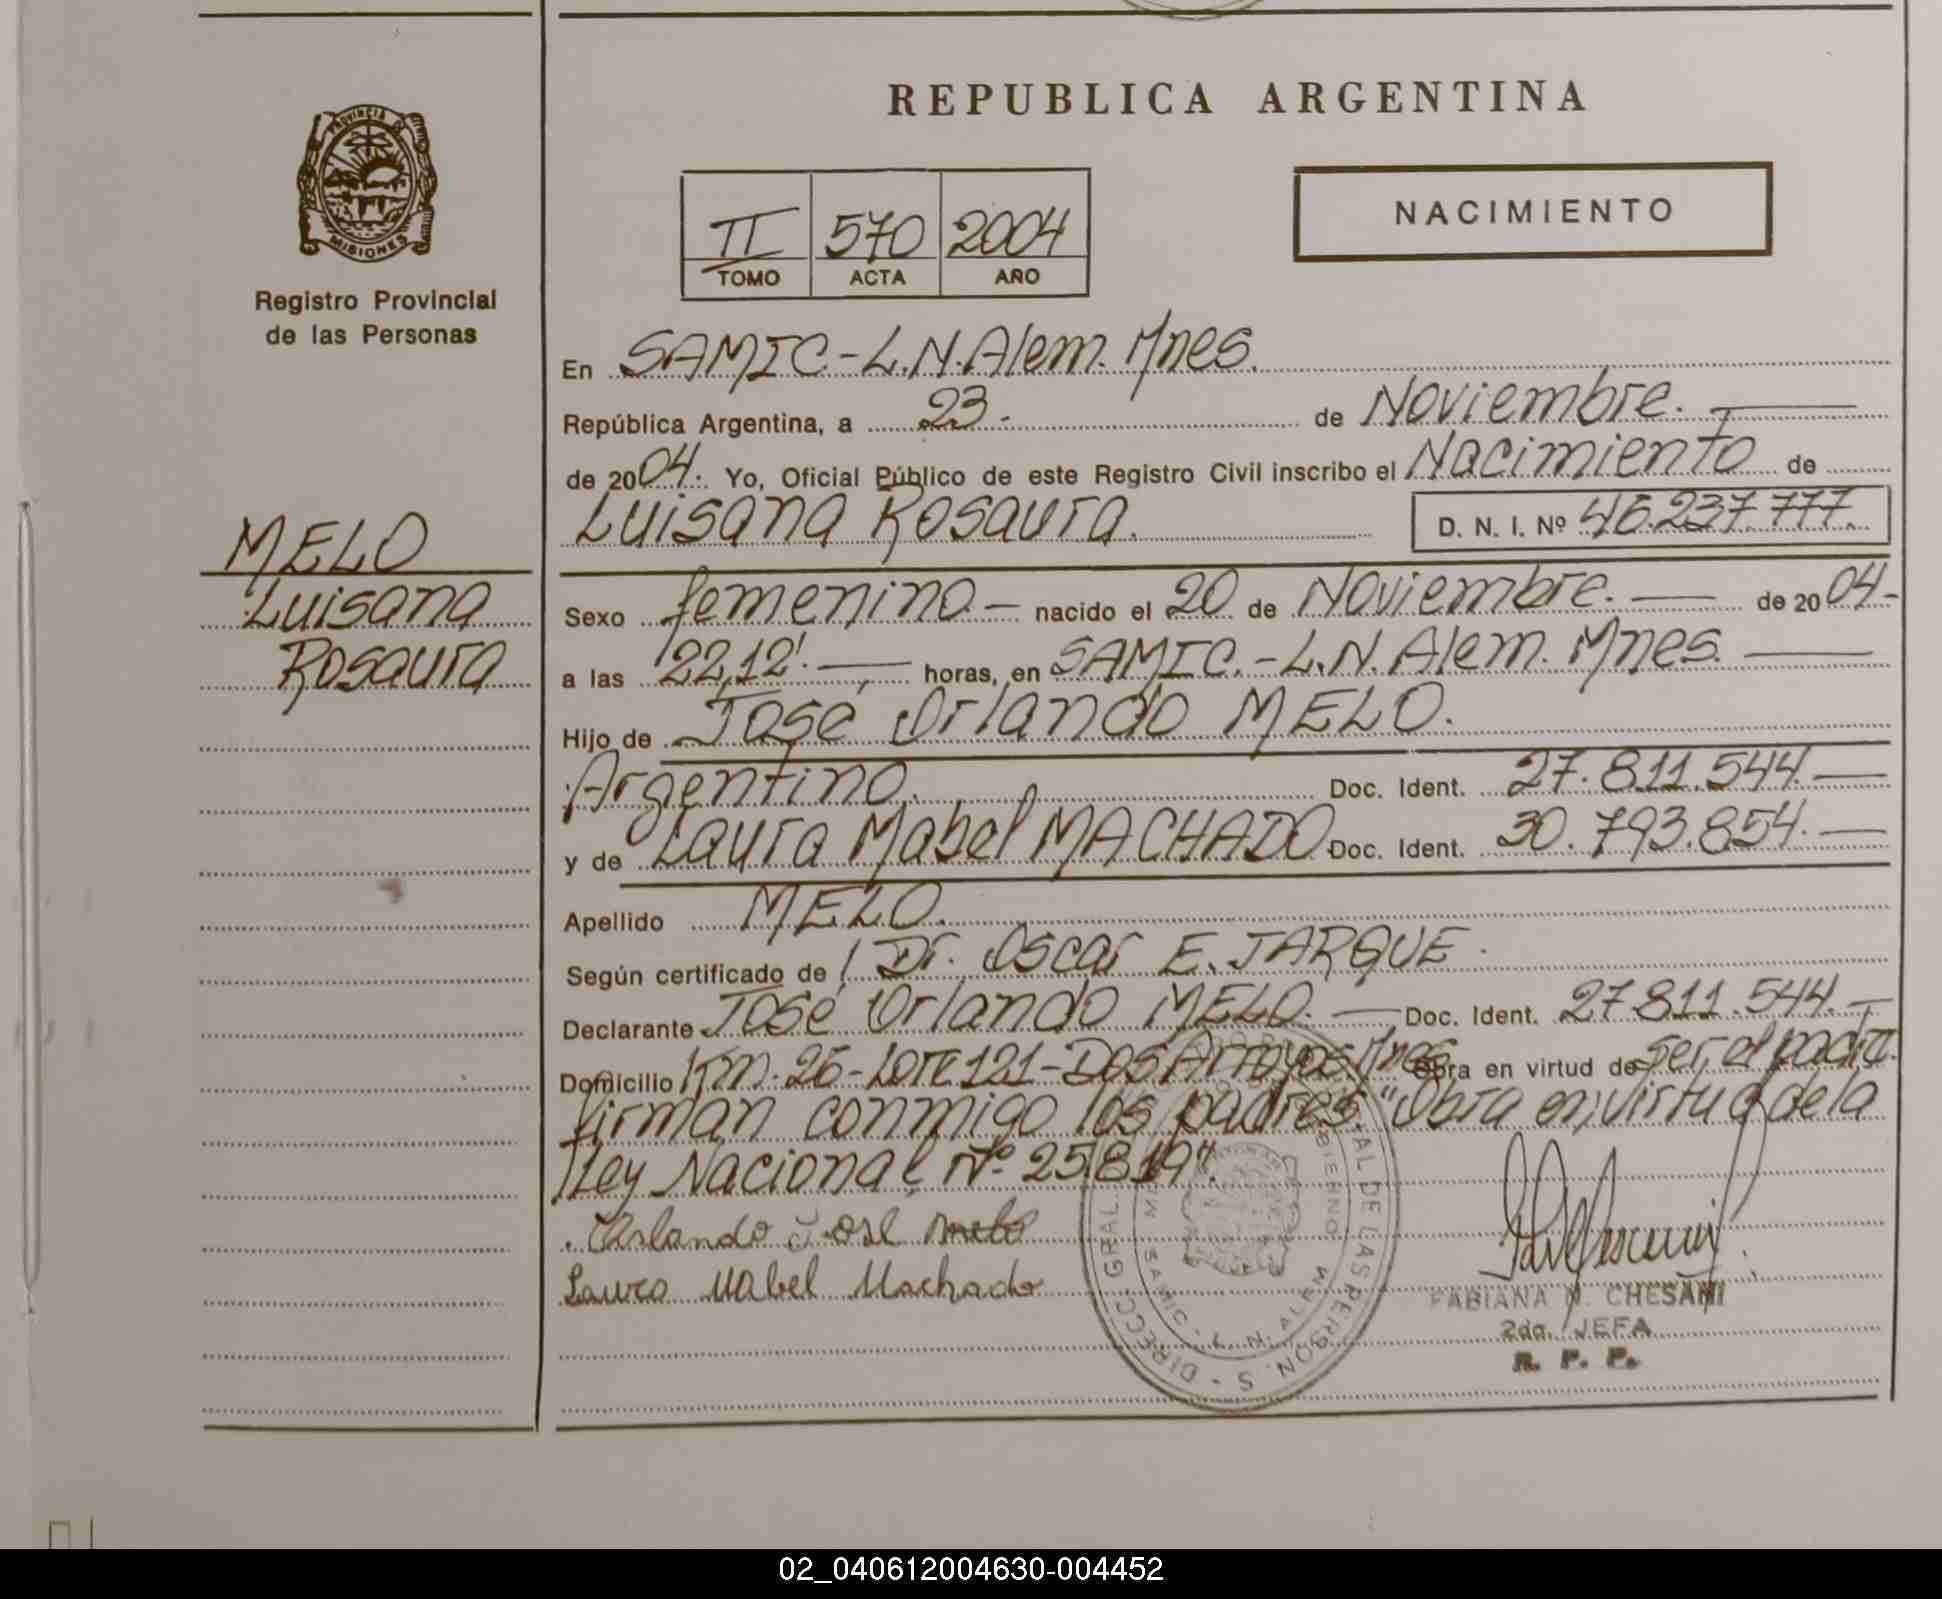 REPUBLICA ARGENTINA
PROVINCIA DE MISIONES
Registro Provincial
de las Personas
II 570 2004
TOMO ACTA AÑO
NACIMIENTO
En SAMIC-L.N.Alem. Mnes.
República Argentina, a 23. de Noviembre.
de 2004. Yo, Oficial Público de este Registro Civil inscribo el Nacimiento de
Luisana Rosaura. D. N. I. Nº 46.237.777.
MELO
Luisana
Rosaura
Sexo femenino.- nacido el 20 de Noviembre. de 2004-
a las 22,12'. horas, en SAMIC.-L.N. Alem. Mnes.
Hijo de José Orlando MELO.
Argentino. Doc. Ident. 27.811.544.
y de Laura Mabel MACHADO Doc. Ident. 30.793.854.
Apellido MELO.
Según certificado de Dr. Oscar E. JARQUE.
Declarante José Orlando MELO. Doc. Ident. 27.811.544.
Domicilio Km. 26-Lote 121-Dos Arroyos Mnes Obra en virtud de ser el padre.
firman conmigo los padres "Obra en virtud de la
Ley Nacional Nº 25.819".
Orlando José Melo
Laura Mabel Machado
FABIANA M. CHESANI
2da. JEFA
R. P. P.
DIRECC. GRAL. DE LAS PERSONAS
SAMIC - L. N. ALEM
02_040612004630-004452